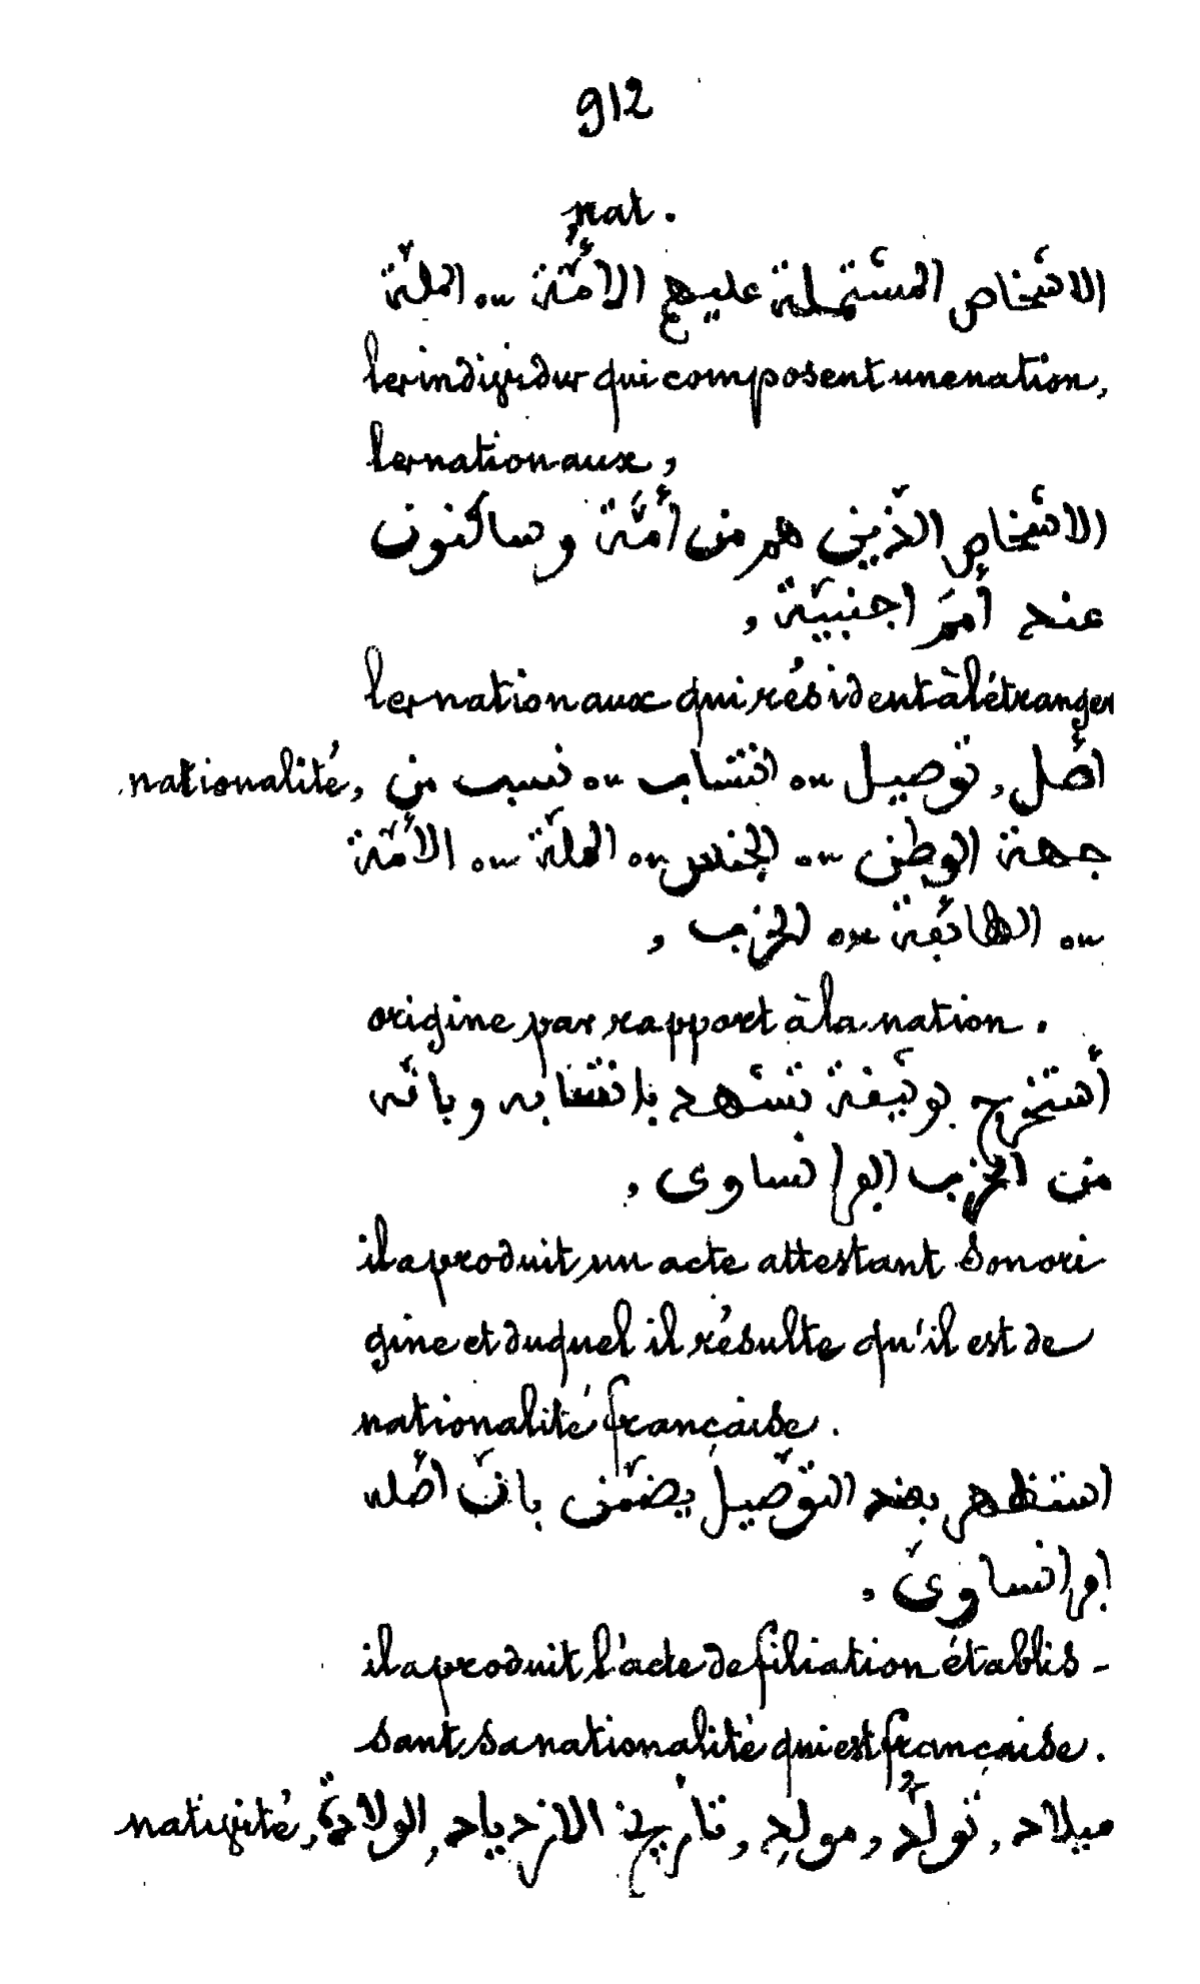 912
nat.
الاشخاص المشتملة عليهم الأمّة ou الملّة
les individus qui composent une nation,
les nationaux,
الاشخاص الذّين هم من أمّة وساكنون
عند أممَ اجنبيّة,
les nationaux qui résident à l'étranger
nationalité, اصْل, توصيل ou انتساب ou نسب من
جهة الوطن ou الجنس ou الملّة ou الأمّة
ou الطائڢة ou الحزب,
origine par rapport à la nation.
أستخرج بوثيڧة تشهد بانتسابه وبانّه
من الحزب الڢرانساوى,
il a produit un acte attestant son ori
gine et duquel il résulte qu'il est de
nationalité française.
استظهر بعند التوّصيل يضمّن بانّ اصْله
اڢرانساوىّ,
il a produit l'acte de filiation établis-
sant sa nationalité qui est française.
nativité, ميلاد, تولّد, مولد, تأريخ الازدياد, الولادة